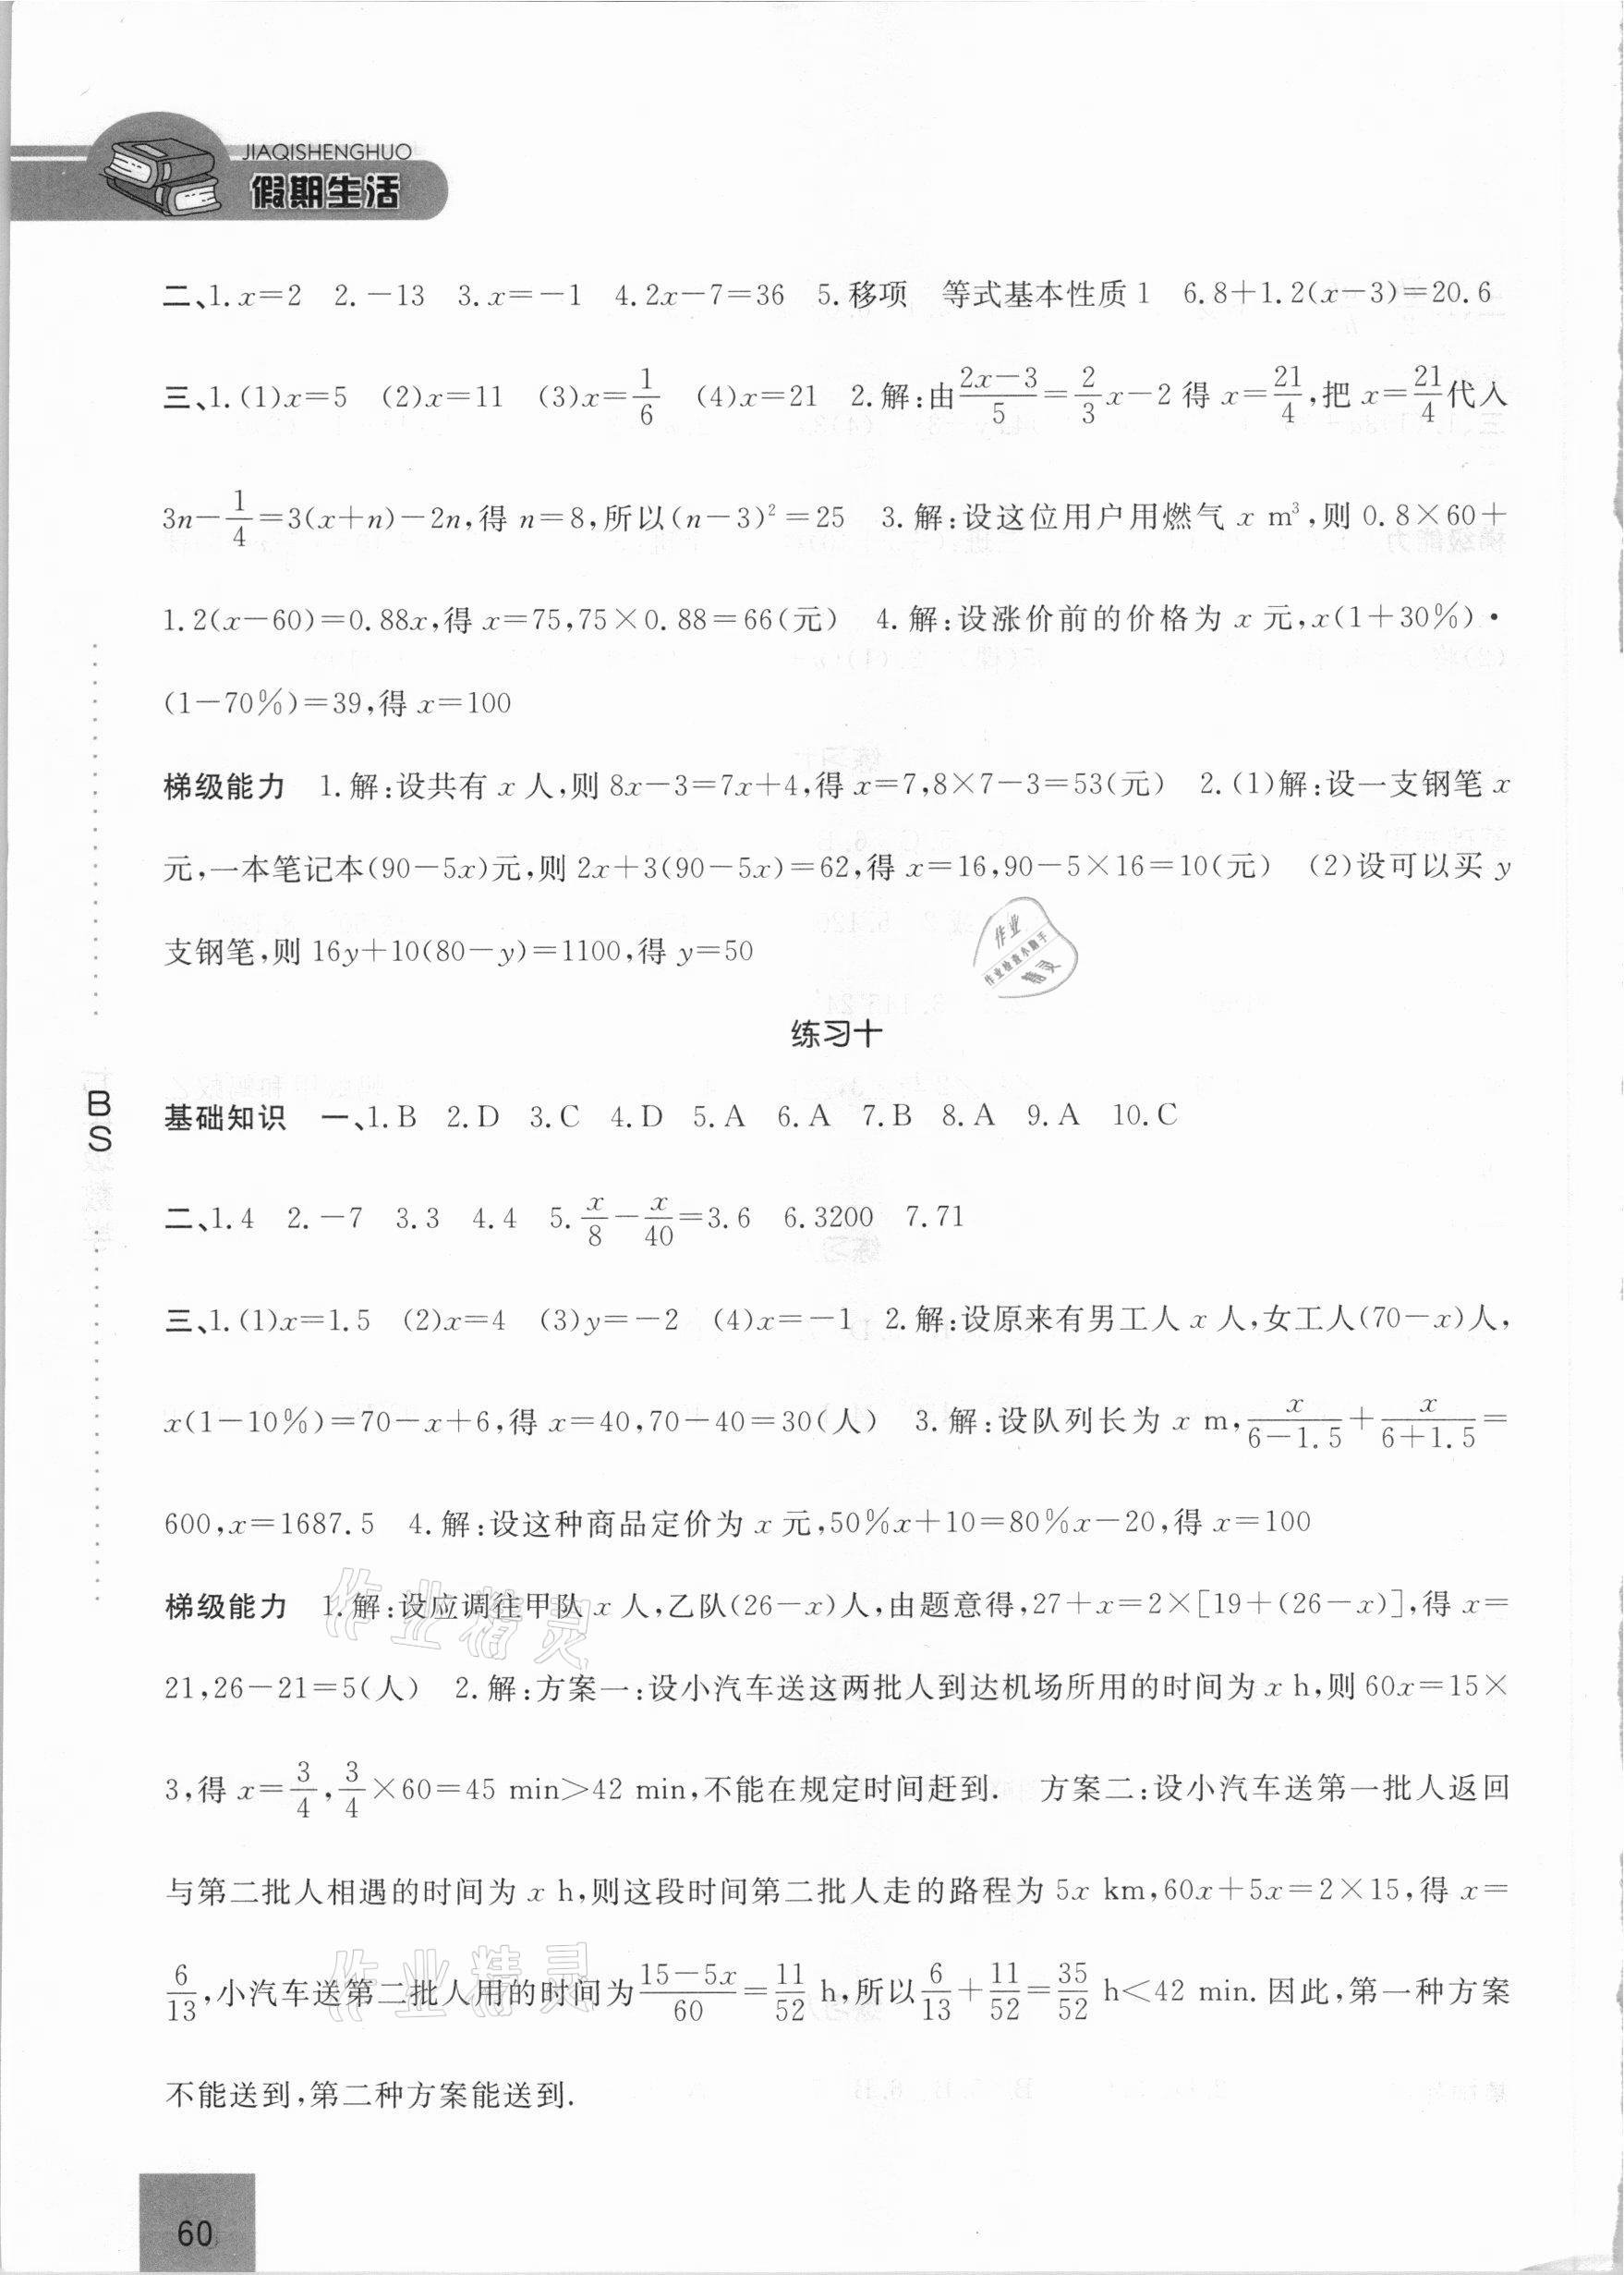 JIAQISHENGHUO
假期生活
二、1. x=2 2. －13 3. x=－1 4. 2x－7=36 5. 移项 等式基本性质1 6. 8+1.2(x－3)=20.6
三、1. (1)x=5 (2)x=11 (3)x=1/6 (4)x=21 2. 解:由(2x－3)/5=2/3x－2得 x=21/4,把 x=21/4代入
3n－1/4=3(x+n)－2n,得 n=8,所以(n－3)²=25 3. 解:设这位用户用燃气 x m³,则 0.8×60+
1.2(x－60)=0.88x,得 x=75,75×0.88=66(元) 4. 解:设涨价前的价格为 x 元,x(1+30%)·
(1－70%)=39,得 x=100
梯级能力 1. 解:设共有 x 人,则 8x－3=7x+4,得 x=7,8×7－3=53(元) 2. (1)解:设一支钢笔 x
元,一本笔记本(90－5x)元,则 2x+3(90－5x)=62,得 x=16,90－5×16=10(元) (2)设可以买 y
支钢笔,则 16y+10(80－y)=1100,得 y=50
作业
作业检查小助手
精灵
练习十
基础知识 一、1. B 2. D 3. C 4. D 5. A 6. A 7. B 8. A 9. A 10. C
二、1. 4 2. －7 3. 3 4. 4 5. x/8－x/40=3.6 6. 3200 7. 71
三、1. (1)x=1.5 (2)x=4 (3)y=－2 (4)x=－1 2. 解:设原来有男工人 x 人,女工人(70－x)人,
x(1－10%)=70－x+6,得 x=40,70－40=30(人) 3. 解:设队列长为 x m,x/(6－1.5)+x/(6+1.5)=
600,x=1687.5 4. 解:设这种商品定价为 x 元,50%x+10=80%x－20,得 x=100
梯级能力 1. 解:设应调往甲队 x 人,乙队(26－x)人,由题意得,27+x=2×[19+(26－x)],得 x=
21,26－21=5(人) 2. 解:方案一:设小汽车送这两批人到达机场所用的时间为 x h,则 60x=15×
3,得 x=3/4,3/4×60=45 min>42 min,不能在规定时间赶到. 方案二:设小汽车送第一批人返回
与第二批人相遇的时间为 x h,则这段时间第二批人走的路程为 5x km,60x+5x=2×15,得 x=
6/13,小汽车送第二批人用的时间为(15－5x)/60=11/52 h,所以6/13+11/52=35/52 h<42 min. 因此,第一种方案
不能送到,第二种方案能送到.
作业精灵
作业精灵
BS
60